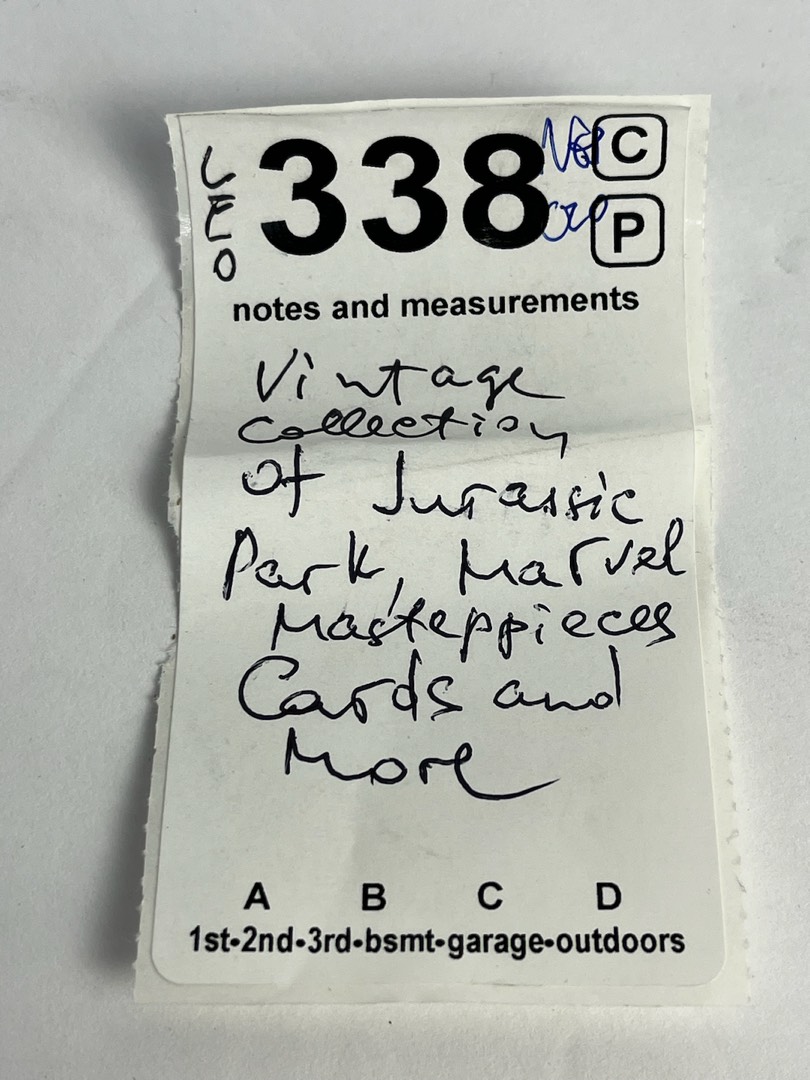 LEO
338
C
P
notes and measurements
Vintage
collection
of Jurassic
Park, Marvel
Masteppieces
Cards and
More
A B C D
1st•2nd•3rd•bsmt•garage•outdoors